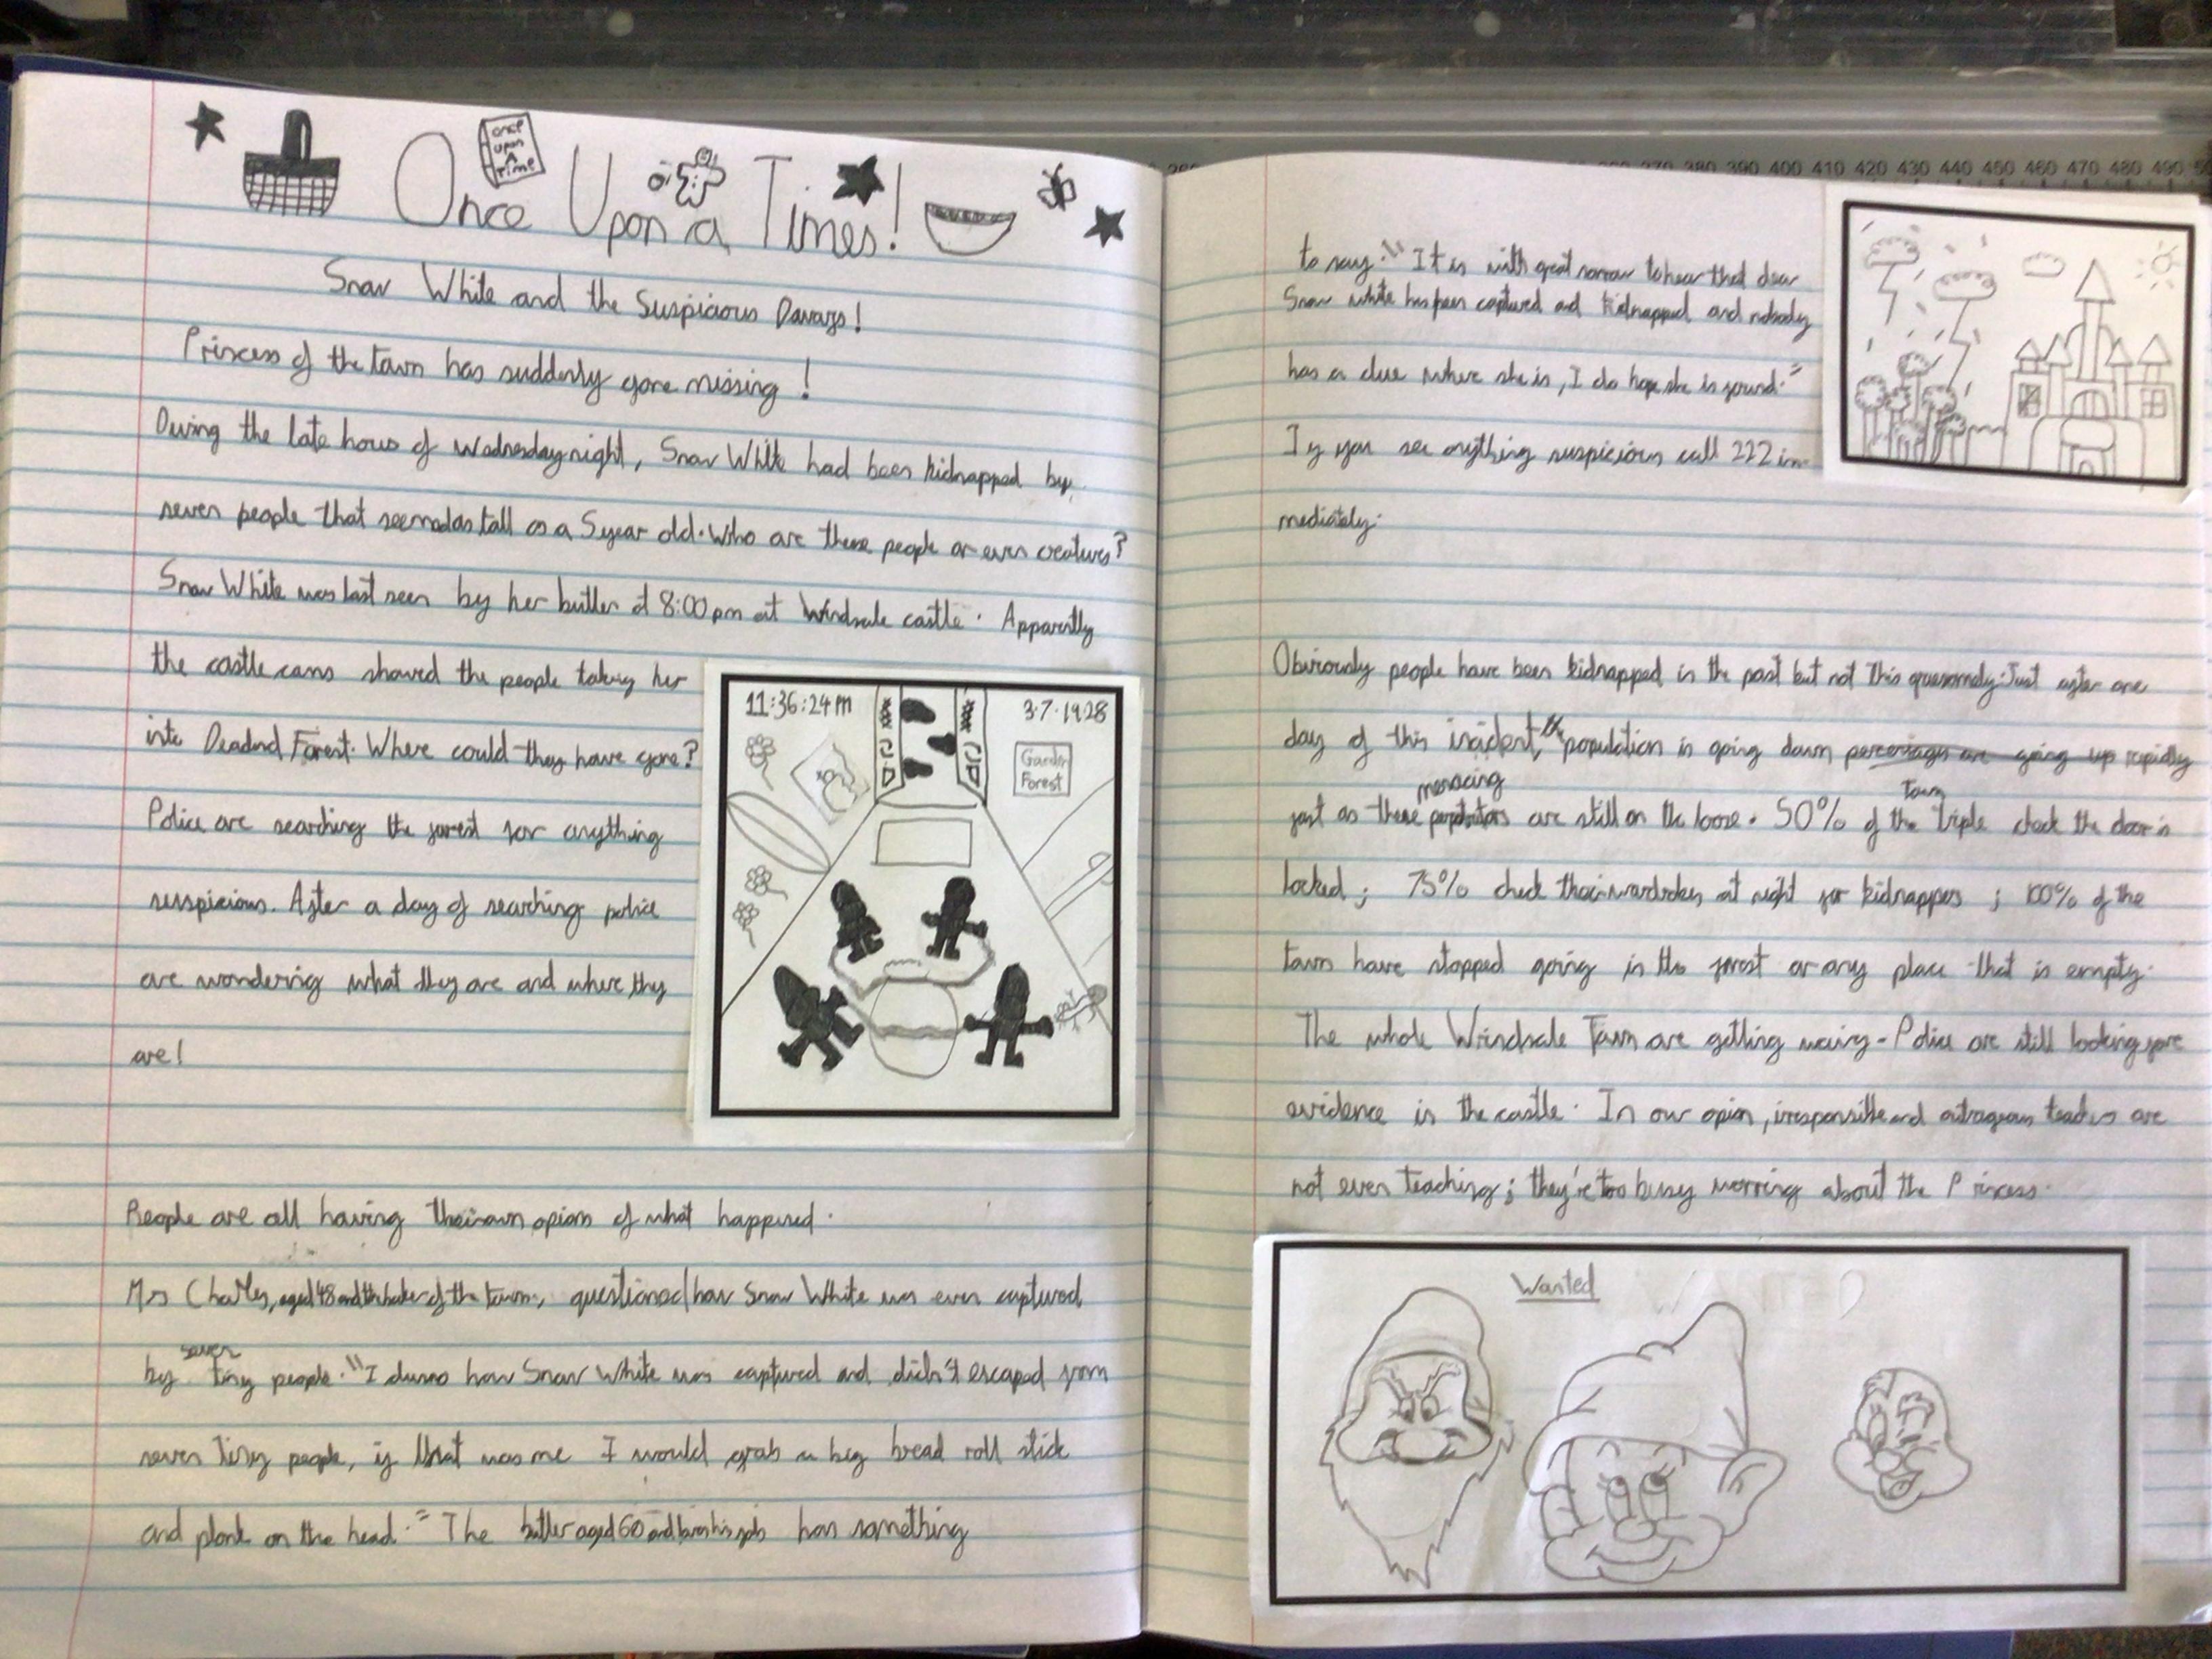 once
upon
A
Time
Once Upon a Times!
Snow White and the Suspicious Dwarfs!
Princess of the town has suddenly gone missing!
During the late hours of Wednesday night, Snow White had been kidnapped by
seven people that seemed as tall as a 5 year old. Who are these people or even creatures?
Snow White was last seen by her butler at 8:00pm at Windsale castle. Apparently
the castle cams showed the people taking her
into Deadend Forest. Where could they have gone?
Police are searching the forest for anything
susspicious. After a day of searching police
are wondering what they are and where they
are!
11:36:24 PM
3.7.1928
Garden
Forest
People are all having their own opions of what happened.
Mrs Charles, aged 48 and the baker of the town, questioned how Snow White was ever captured
by seven tiny people. "I dunno how Snow White was captured and didn't escaped from
seven tiny people, if that was me I would grab a big bread roll stick
and plonk on the head." The butler aged 60 and loves his job has something
to say. "It is with great sorrow to hear that dear
Snow white has been captured and kidnapped and nobody
has a clue where she is, I do hope she is found."
If you see anything suspicious call 222 im
mediately.
Obviously people have been kidnapped in the past but not this gruesomely. Just after one
day of this incident, the population is going down percentages are going up rapidly
just as these menacing are still on the loose. 50% of the town triple check the door is
locked; 75% check their wardrobes at night for kidnappers; 100% of the
town have stopped going in the forest or any place that is empty.
The whole Windsale Town are getting wairy. Police are still looking fore
evidence in the castle. In our opion, irresponsible and outrageous teachers are
not even teaching; they're too busy worring about the Princess.
Wanted